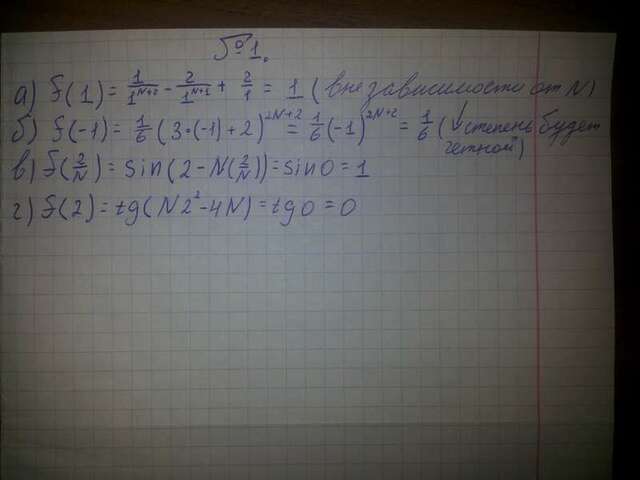 №1.
а) f(1) = 1/1^(N+2) - 2/1^(N+1) + 2/1 = 1 (вне зависимости от N)
б) f(-1) = 1/6 (3*(-1)+2)^(2N+2) = 1/6 (-1)^(2N+2) = 1/6 (↓ степень будет четной)
в) f(2/N) = sin(2-N(2/N)) = sin0 = 1
г) f(2) = tg(N2²-4N) = tg0 = 0